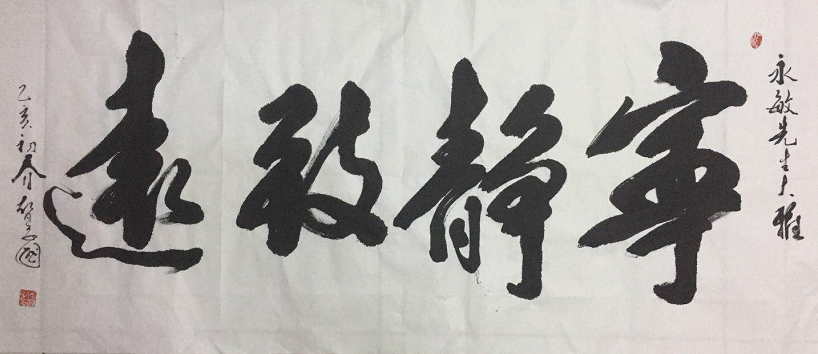 永敏先生大雅
寧靜致遠
乙亥初春智國